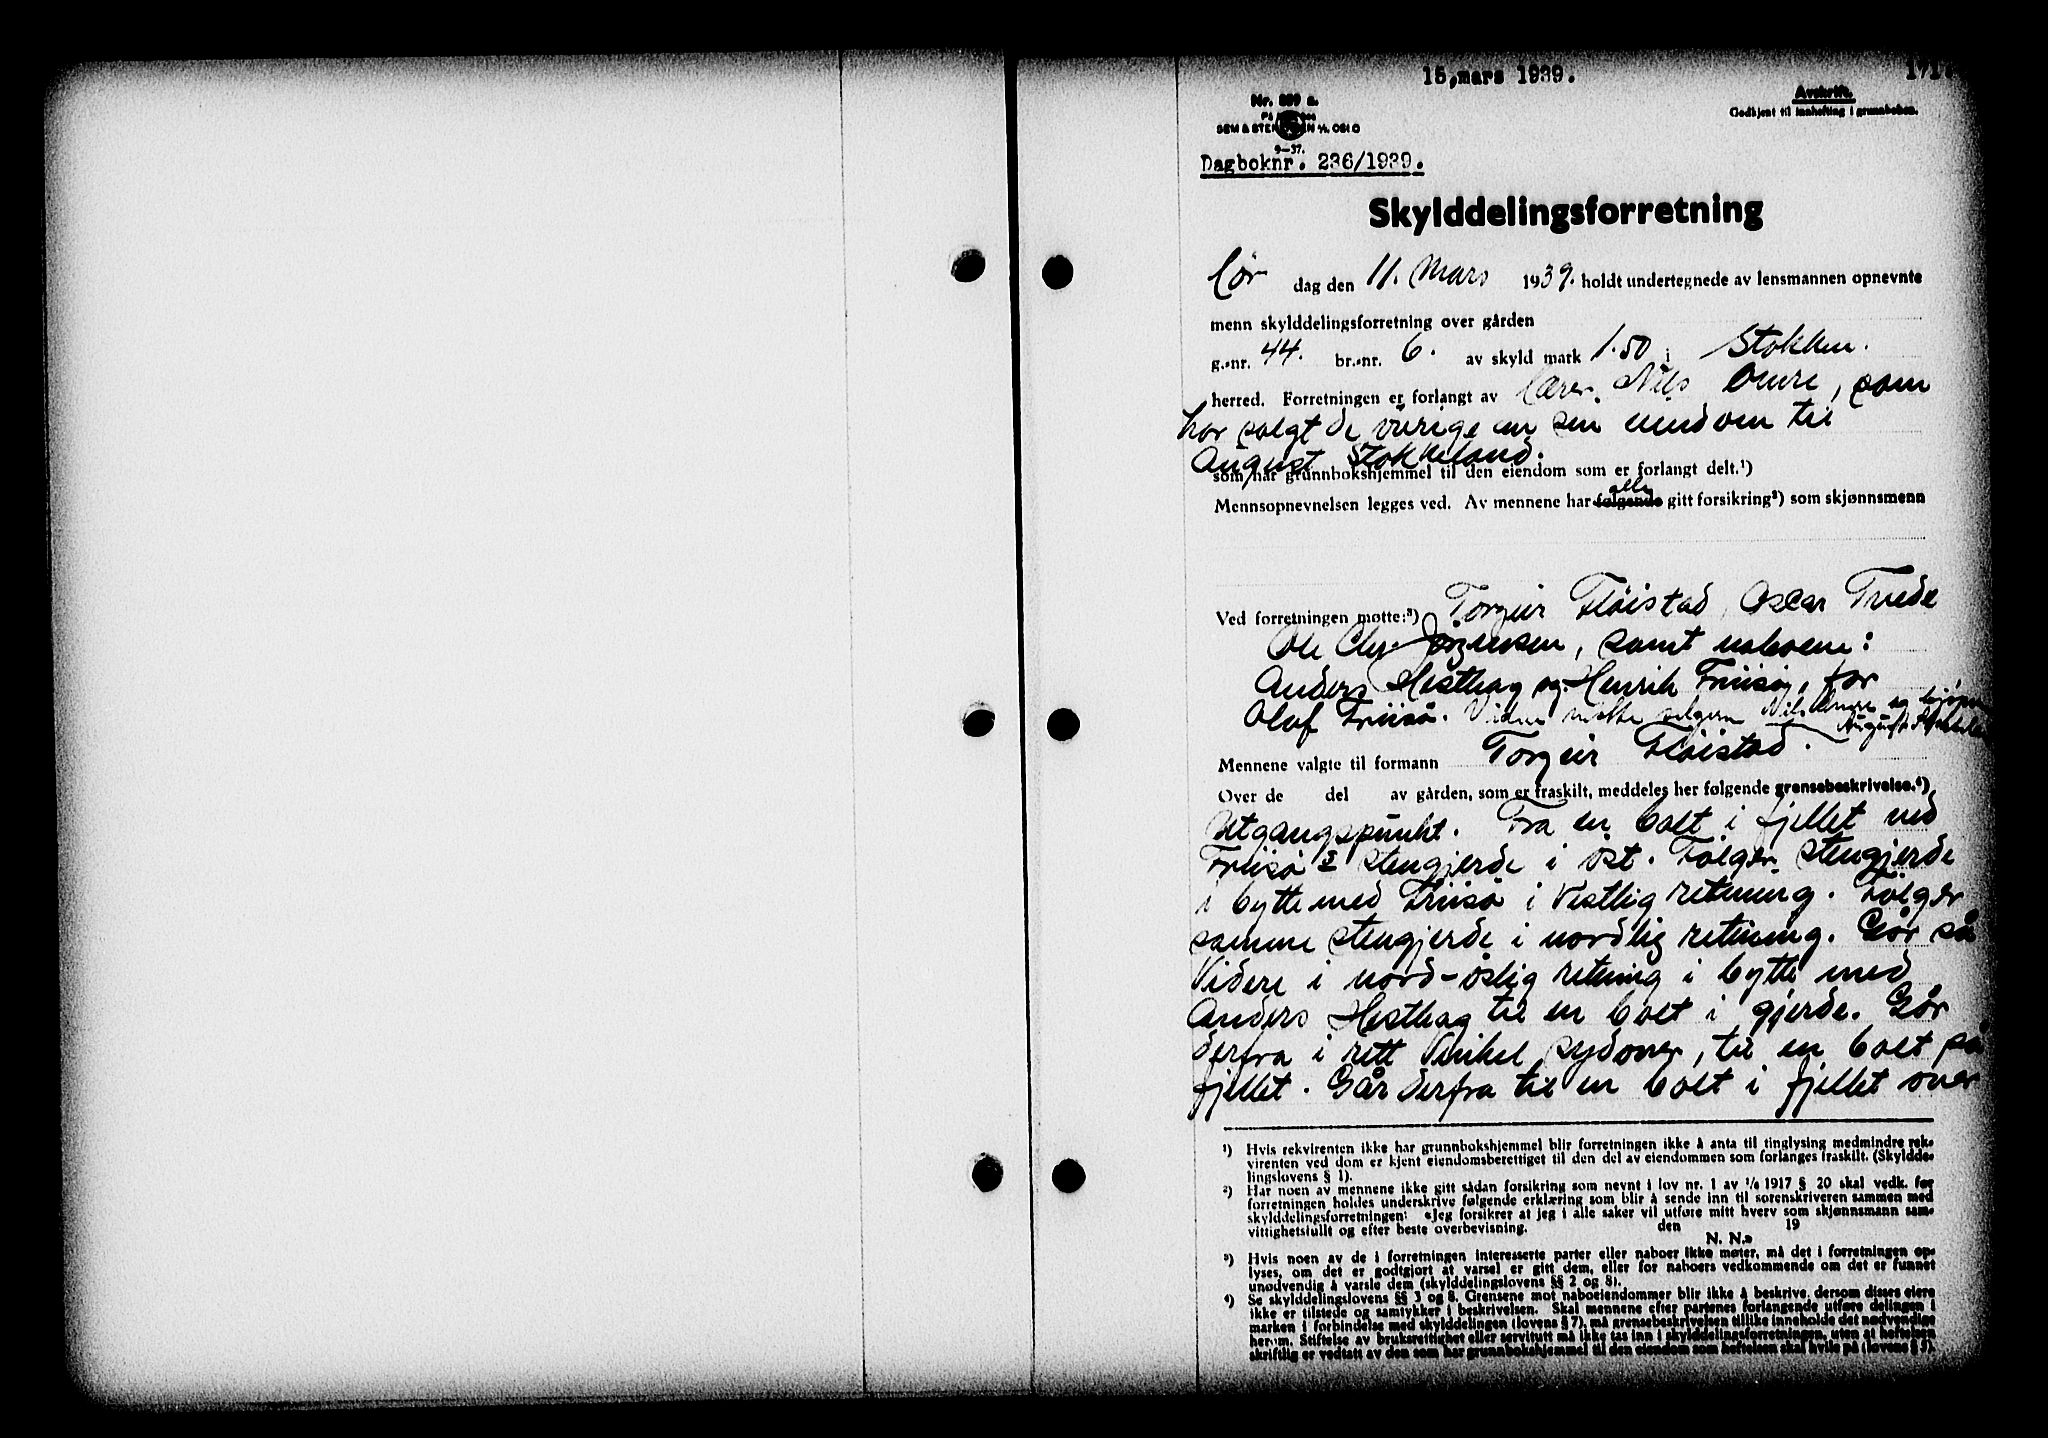 15, mars 1939.
171
Avskrift.
Godkjent til innhefting i grunnboken.
Nr. 239 a.
SEM & STENERSEN A/S. OSLO
9–37.
Dagboknr. 236/1939.
Skylddelingsforretning
Lør dag den 11. Mars 1939. holdt undertegnede av lensmannen opnevnte
menn skylddelingsforretning over gården
g.-nr. 44. br.-nr. 6. av skyld mark 1.50 i Stokken.
herred. Forretningen er forlangt av Lærer Nils Omre, som
har solgt de øvrige en sin eiendom til
August Stokkeland.
som har grunnbokshjemmel til den eiendom som er forlangt delt.¹)
alle
Mennsopnevnelsen legges ved. Av mennene har følgende gitt forsikring²) som skjønnsmenn
Ved forretningen møtte:³) Torgeir Fløistad, Oscar Tvede
Ole Chr. Jørgensen, samt naboene:
Anders Hesthag og Henrik Friisø, for
Oluf Friisø. Videre møtte selgeren Nils Omre og kjøper
August Stokkeland
Mennene valgte til formann Torgeir Fløistad.
Over de del av gården, som er fraskilt, meddeles her følgende grensebeskrivelse.⁴)
Utgangspunkt. Fra en bolt i fjellet ved
Friisø s stengjerde i øst. Følger stengjerde
i bytte med Friisø i Vestlig retning. Følger
samme stengjerde i nordlig retning. Går så
Videre i nord-øslig retning i bytte med
Anders Hesthag til en bolt i gjerde. Går
derfra i rett Vinkel sydover, til en bolt på
fjellet. Går derfra til en bolt i fjellet over
¹) Hvis rekvirenten ikke har grunnbokshjemmel blir forretningen ikke å anta til tinglysing medmindre rek-
virenten ved dom er kjent eiendomsberettiget til den del av eiendommen som forlanges fraskilt. (Skyldde-
lingslovens § 1).
²) Har noen av mennene ikke gitt sådan forsikring som nevnt i lov nr. 1 av ¹/₆ 1917 § 20 skal vedk. før
forretningen holdes underskrive følgende erklæring som blir å sende inn til sorenskriveren sammen med
skylddelingsforretningen: «Jeg forsikrer at jeg i alle saker vil utføre mitt hverv som skjønnsmann sam-
vittighetsfullt og efter beste overbevisning. den 19
N. N.»
³) Hvis noen av de i forretningen interesserte parter eller naboer ikke møter, må det i forretningen op-
lyses, om det er godtgjort at varsel er gitt dem, eller for naboers vedkommende om det er funnet
unødvendig å varsle dem (skylddelingslovens §§ 2 og 8).
⁴) Se skylddelingslovens §§ 3 og 8. Grensene mot naboeiendommer blir ikke å beskrive, dersom disses eiere
ikke er tilstede og samtykker i beskrivelsen. Skal mennene efter partenes forlangende utføre delingen i
marken i forbindelse med skylddelingen (lovens § 7), må grensebeskrivelsen tillike inneholde det nødvendige
herom. Stiftelse av bruksrettighet eller servitutt må ikke tas inn i skylddelingsforretningen, uten at heftelsen
skriftlig er vedtatt av den som har grunnbokshjemmel til den eiendom som heftelsen skal hvile på (lovens § 5).